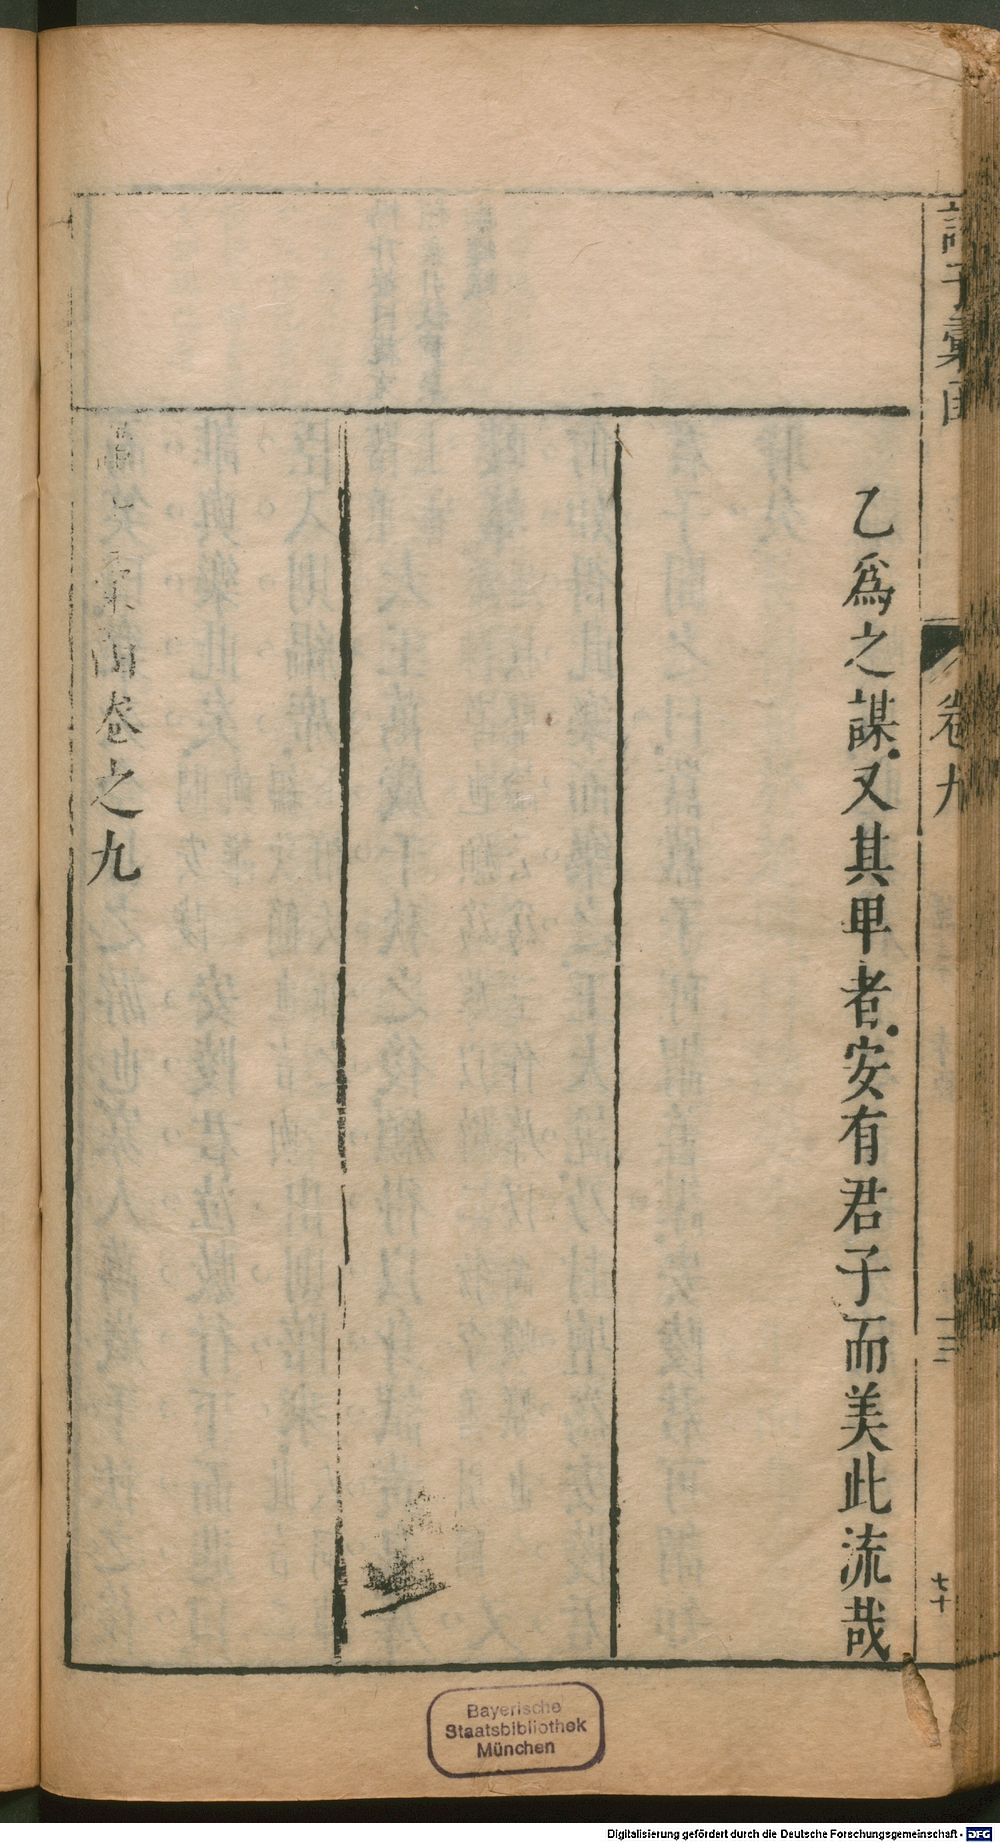 諸子彙函
卷九
七十
乙爲之謀又其甲者安有君子而美此流哉
彙函卷之九
Bayerische
Staatsbibliothek
München
Digitalisierung gefördert durch die Deutsche Forschungsgemeinschaft - DFG